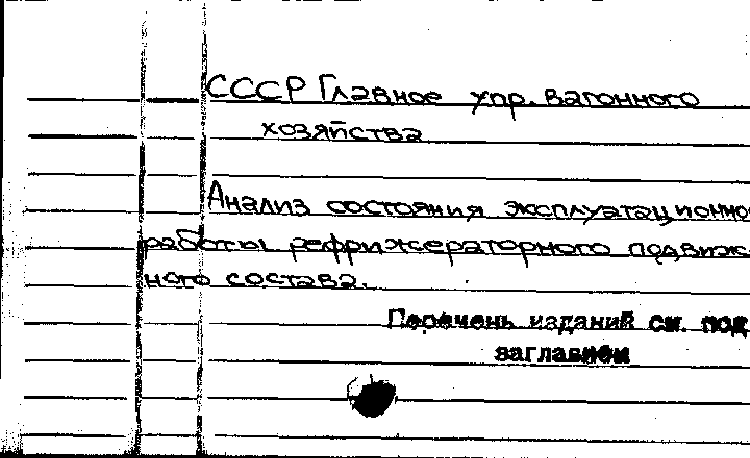 СССР Главное упр. вагонного
хозяйства
Анализ состояния эксплуатационной
работы рефрижераторного подвиж-
ного состава.
Перечень изданий см. под
заглавием